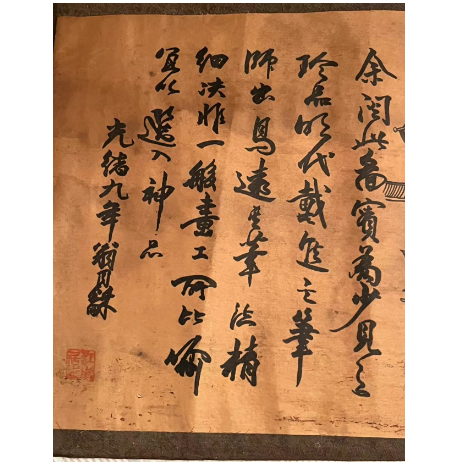 余閱此啚實為少見之
珍品明代戴進之筆
師出馬遠其筆法精
細決非一般畫工所比喻
宜以選入神品
光緒九年翁同龢